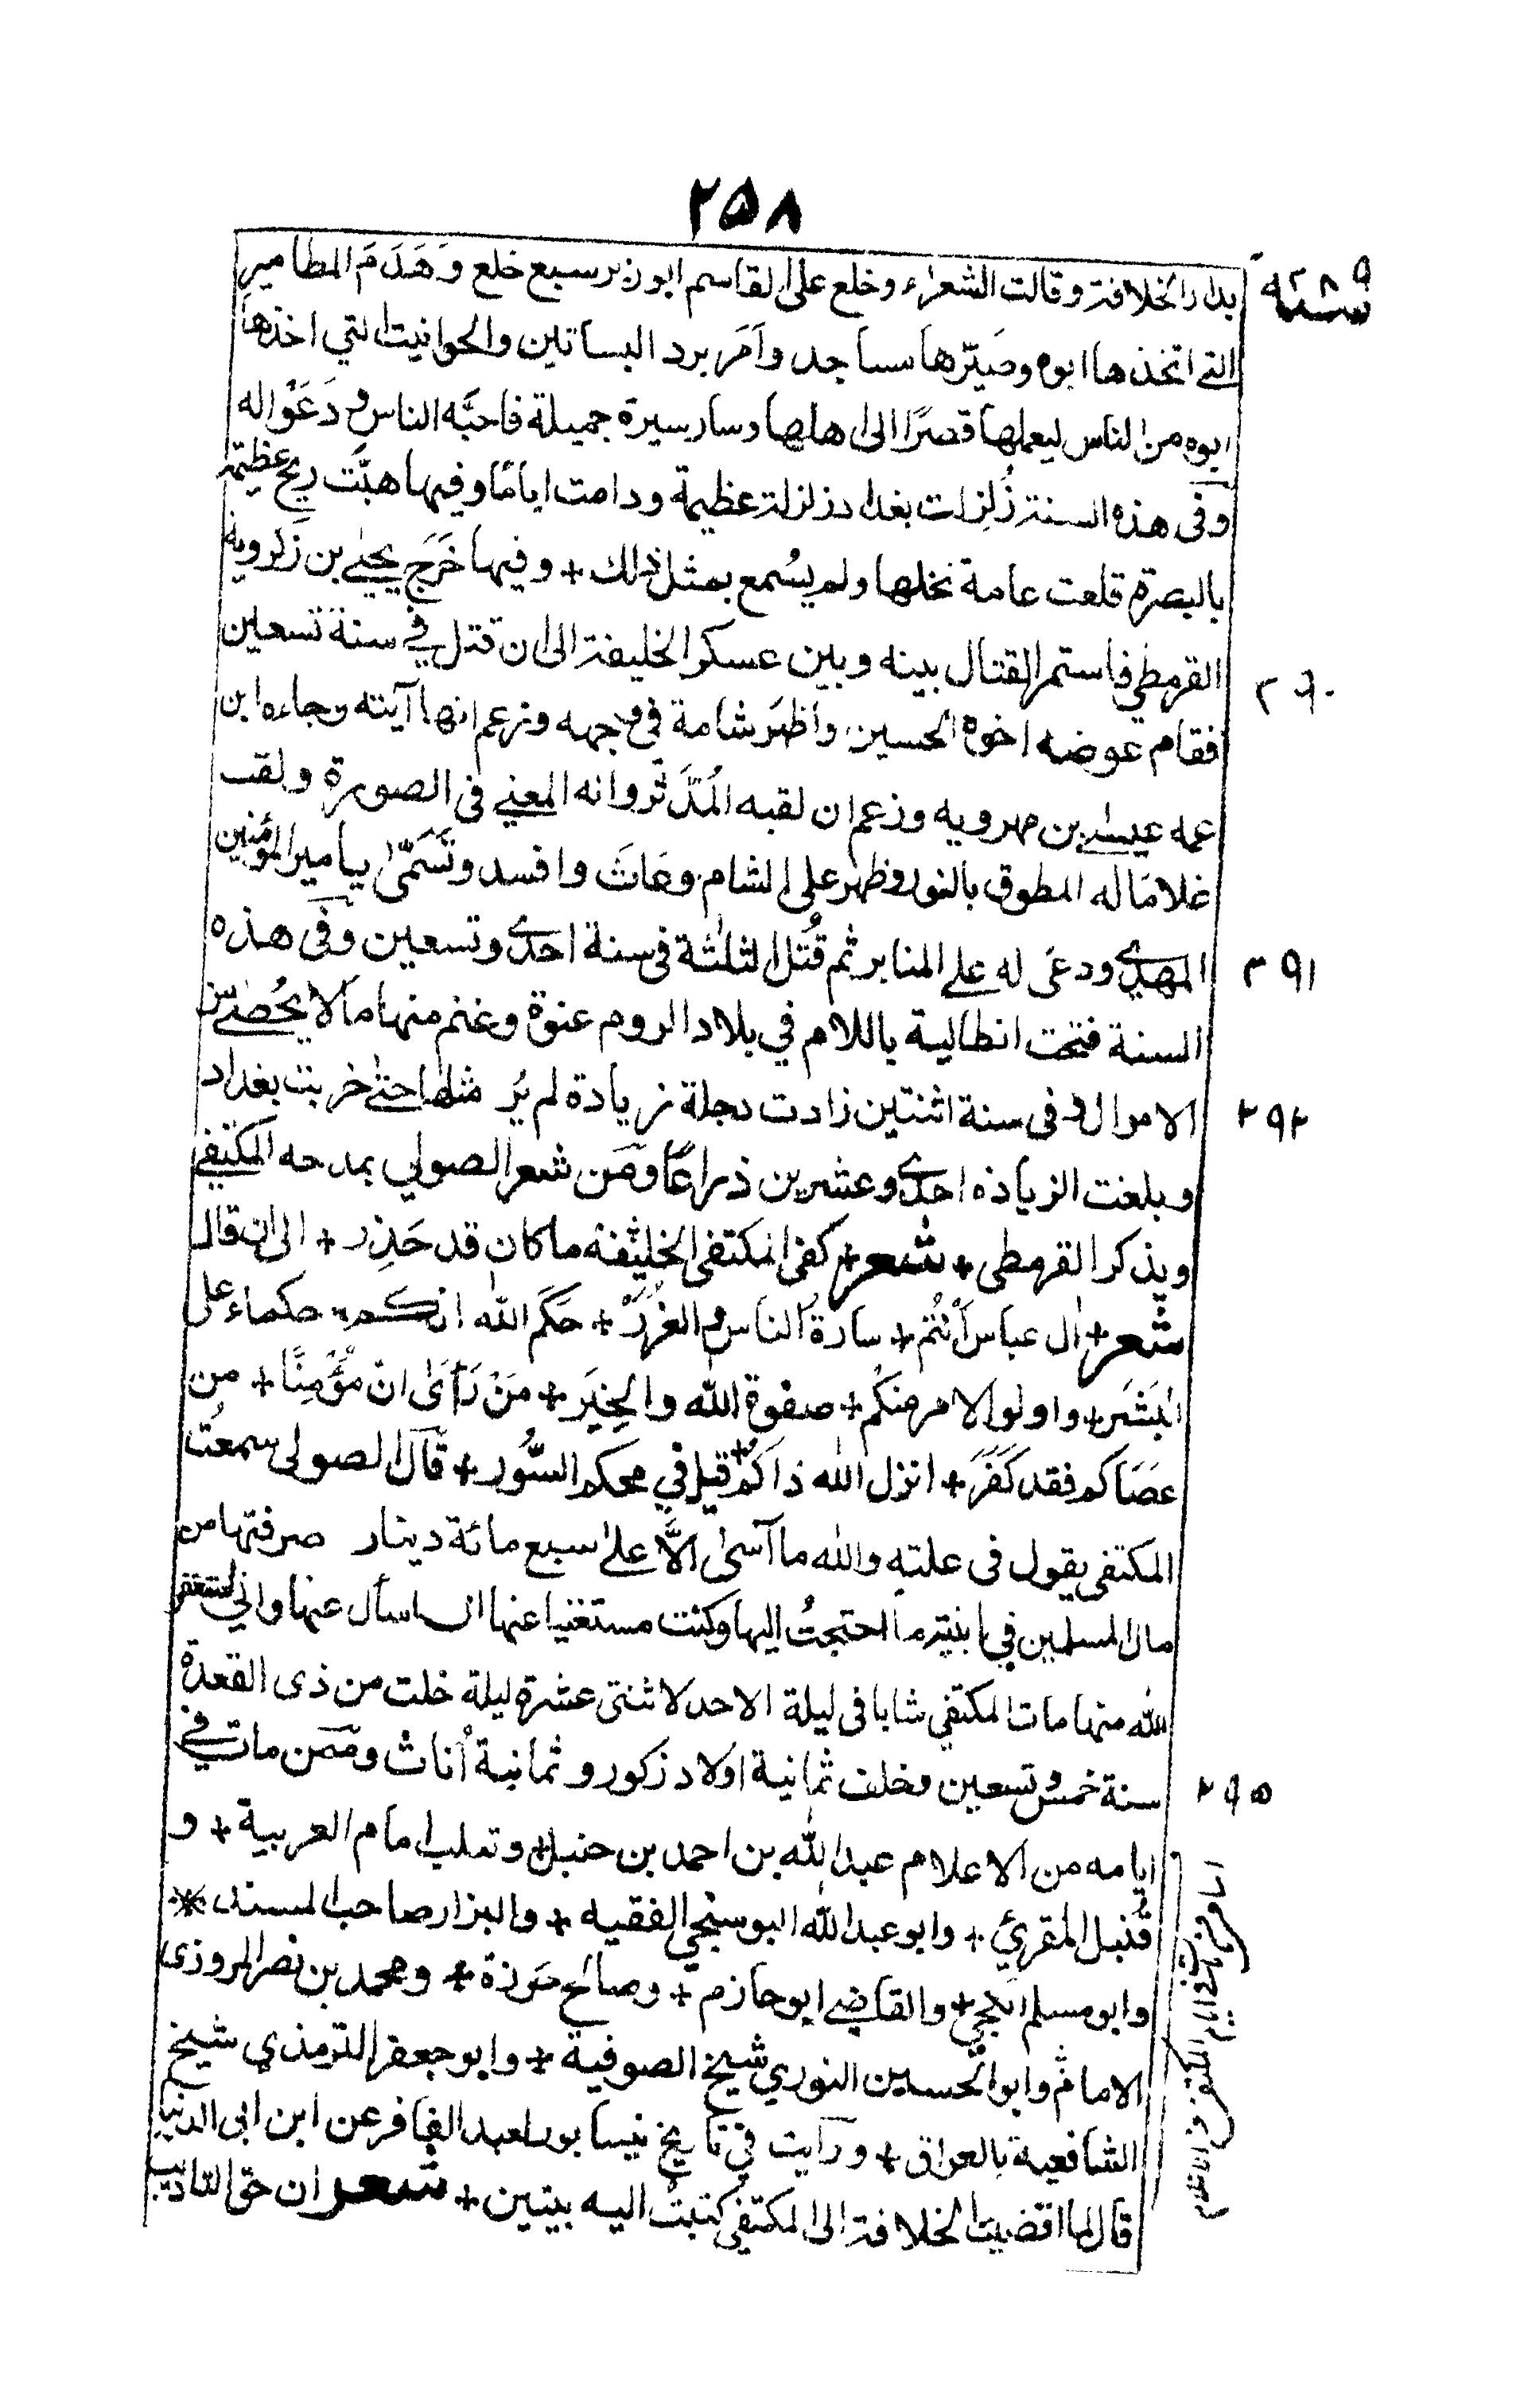 ٢٥٨
بدار الخلافة وقالت الشعراء وخلع على القاسم ابو زير سبع خلع وَهَدَمَ المطامير
التے اتخذها ابوه وصَيّرها مساجد وأمَر برد البساتين والحوانيت التي اخذها
ابوه من الناس ليعملها قصرًا الى اهلها وسار سيرة جميلة فاحبَّه الناس ودَعَوْا له
وفى هذه السنة زُلزلت بغداد زلزلة عظيمة ودامت اياما وفيها هبَّت ريح عظيمة
بالبصرة قلعت عامة نخلها ولم يسُمع بمثل ذلك + وفيها خَرَج يحيٰے بن زكرويه
القرمطي فاستمر القتال بينه وبين عسكر الخليفة الى ان قتل في سنة تسعين
فقام عوضه اخوه الحسين واظهَر شامة في وجهه وزعم انها آيته وجاءه ابن
عمه عيسےٰ بن مهرويه وزعم ان لقبه المُدَّثّر وانه المعني فى الصورة ولقب
غلامًا له المطوق بالنور وظهر على الشام وعَاثَ وافسد وتَسَمّٰى بامير المؤمنين
المهدي ودعى له علے المنابر ثم قُتل الثلٰثة فى سنة احدٰے وتسعين وفى هذه
السنة فتحت انطالية باللام في بلاد الروم عنوة وغنم منها مالا يُحصٰے من
الاموال وفى سنة اثنتين زادت دجلة زيادة لم يُر مثلها حتےٰ خربت بغداد
وبلغت الزيادة احدٰے وعشرين ذراعًا ومن شعر الصولي بمدحه المكتفے
ويذكر القرمطى + شعر + كفى المكتفى الخليفه ما كان قد حَذِر + الى ان قال
شعر + اٰل عباس أنْتُم + سادة الناس والغُرَرْ + حَكَم الله انكم + حكماء على
البَشَر + واولو الامر منكُم + صفوة الله والخِيَر + مَنْ رَأىٰ انّ مؤْمِنًا + من
عَصَاكم فقد كَفَرَ + انزل الله ذاكُمُ + قبل في محكم السُّوَر + قال الصولى سمعتُ
المكتفى يقول فى علته والله ما آسىٰ الّا علےٰ سبع مائة دينار صرفتها من
مال المسلمين في ابنية ما احتجتُ اليها وكنت مستغنيا عنها اخاف ان اسأل عنها واني استغفر
الله منها مات المكتفي شابا فى ليلة الاحد لاثنتى عشرة ليلة خلت من ذى القعدة
سنة خمس وتسعين وخلف ثمانية اولاد ذكور وثمانية أناث وممن مات في
ايامه من الاعلام عبد الله بن احمد بن حنبل + وثعلب امام العربية + و
قُنبل المقرئ + وابو عبد الله البوسنجي الفقيه + والبزار صاحب المسند *
وابو مسلم الكجي + والقاضے ابو حازم + وصالح جزرة + ومحمد بن نصر المروزى
الامام وابو الحسين النوري شيخ الصوفية + وابو جعفر الترمذي شيخ
الشافعية بالعراق + ورأيت في تاريخ نيسابور لعبد الغافر عن ابن ابى الدنيا
قال لما افضيت الخلافة الى المكتفي كتبتُ اليه بيتين + شعر ان حق التاديب
٢٩١
٢٩٢
٢٩٥